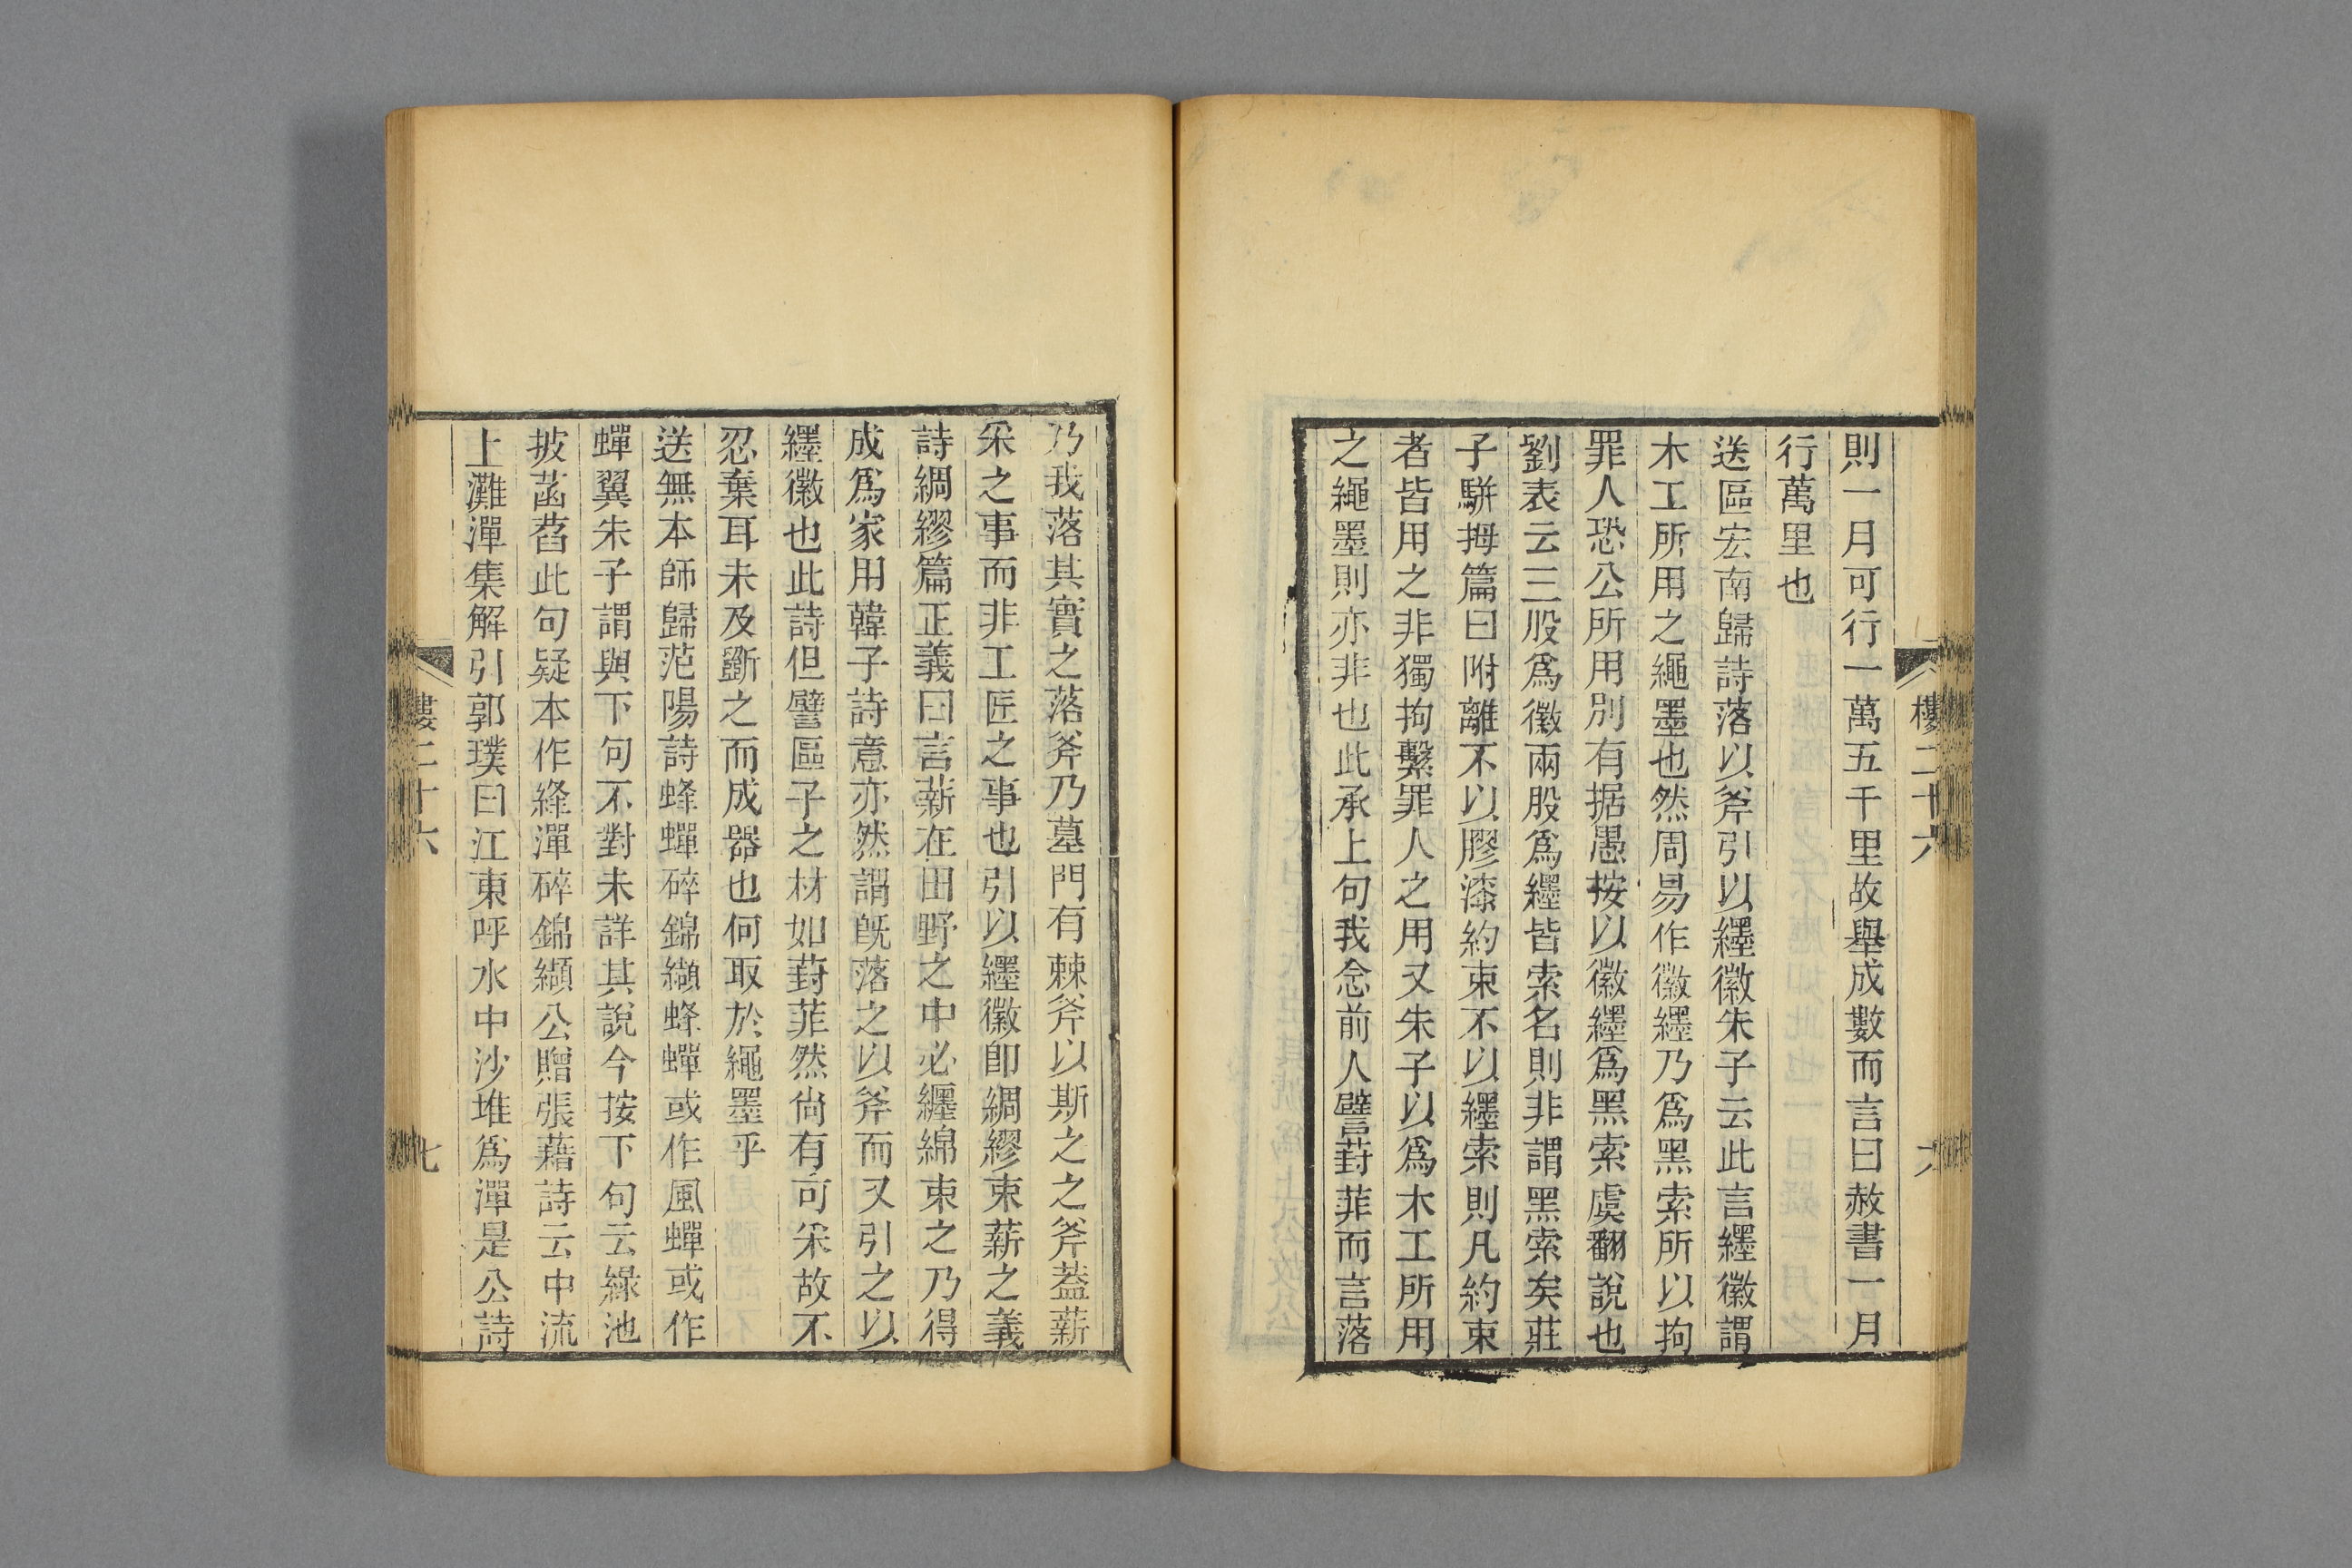 則一月可行一萬五千里故舉成數而言曰赦書一月
行萬里也
送區宏南歸詩落以斧引以纆徽朱子云此言纆徽謂
木工所用之繩墨也然周易作徽纆乃爲黑索所以拘
罪人恐公所用別有据愚按以徽纆爲黑索虞翻說也
劉表云三股爲徽兩股爲纆皆索名則非謂黑索矣莊
子駢拇篇曰附離不以膠漆約束不以纆索則凡約束
者皆用之非獨拘繫罪人之用又朱子以爲木工所用
之繩墨則亦非也此承上句我念前人譬葑菲而言落
樓二十六
六
乃我落其實之落斧乃墓門有棘斧以斯之之斧蓋薪
采之事而非工匠之事也引以纆徽卽綢繆束薪之義
詩綢繆篇正義曰言薪在田野之中必纏綿束之乃得
成爲家用韓子詩意亦然謂旣落之以斧而又引之以
纆徽也此詩但譬區子之材如葑菲然尙有可采故不
忍棄耳未及斵之而成器也何取於繩墨乎
送無本師歸范陽詩蜂蟬碎錦纈蜂蟬或作風蟬或作
蟬翼朱子謂與下句不對未詳其說今按下句云綠池
披菡萏此句疑本作絳潬碎錦纈公贈張藉詩云中流
上灘潬集解引郭璞曰江東呼水中沙堆爲潬是公詩
樓二十六
七